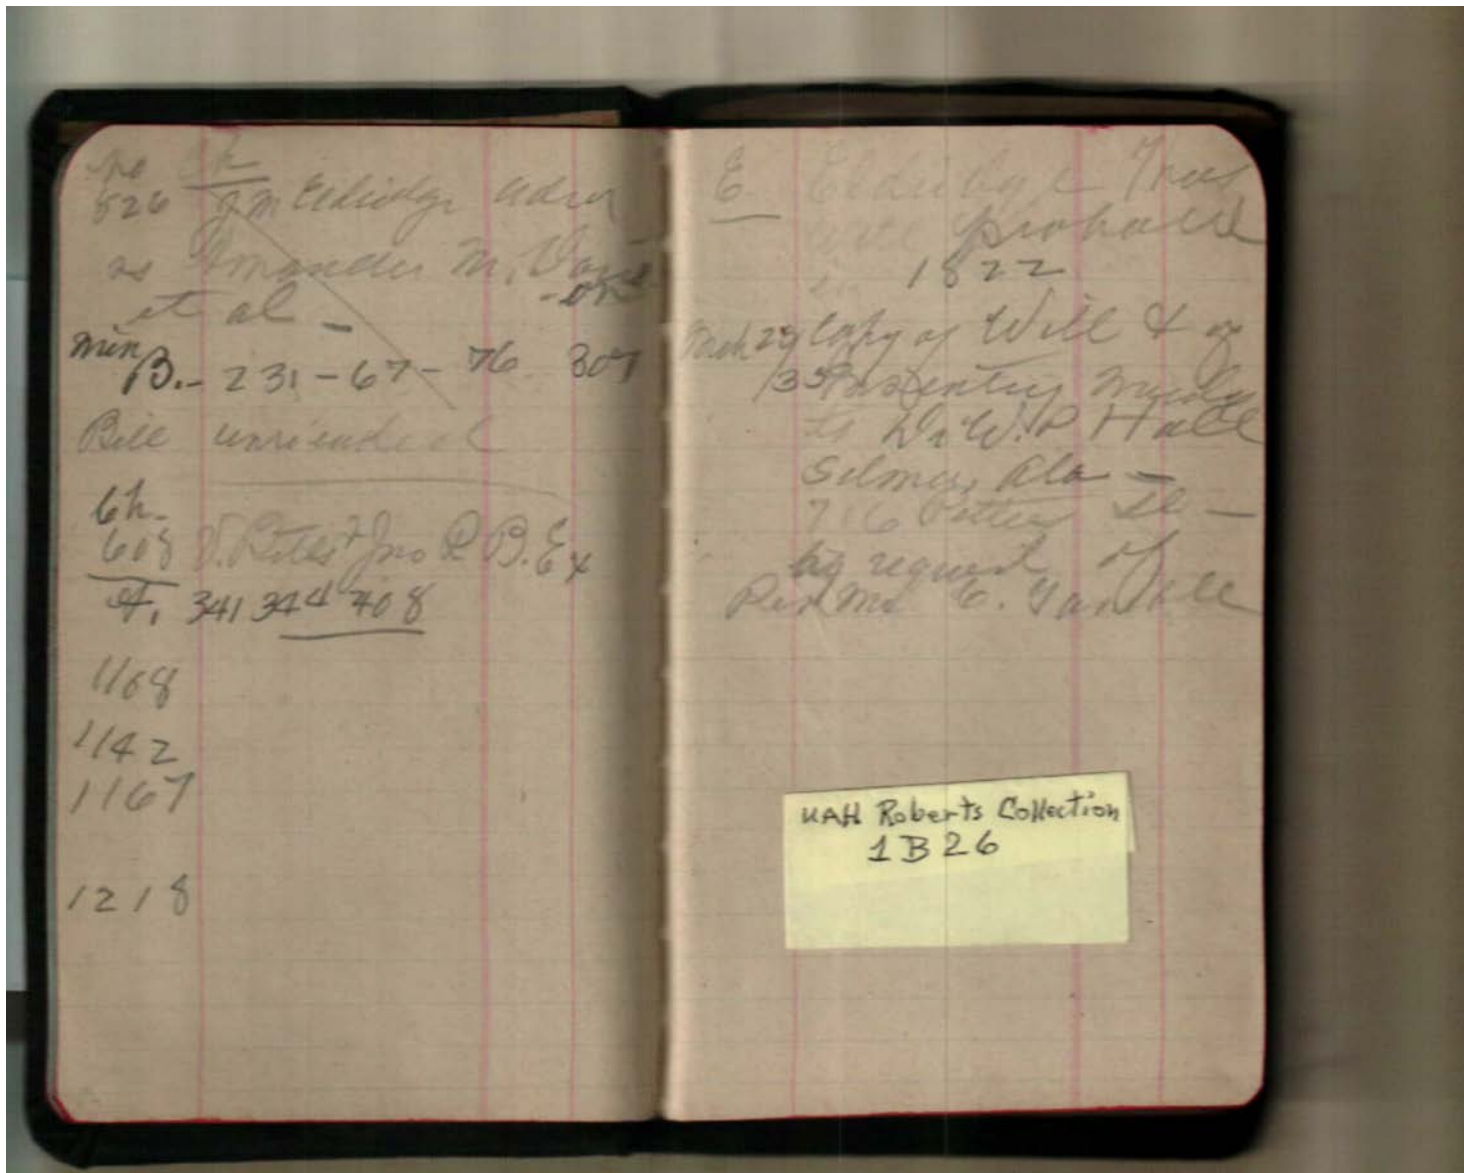 no Ch
526 J M Eldridge Admr
vs Amanda M.
et al -
Min B. - 231 - 67 - 76 307
Bill
Ch
608 V. Jno R. B. Ex
F, 341 344 408
1108
1142
1167
1218
E. Eldridge Thos
will probated
in 1822
Mch 29 Copy of Will & of
/35 Inventory
to Dr W. P Hall
Selma, Ala -
716 St -
as request of
Per Mr E.
UAH Roberts Collection
1B26